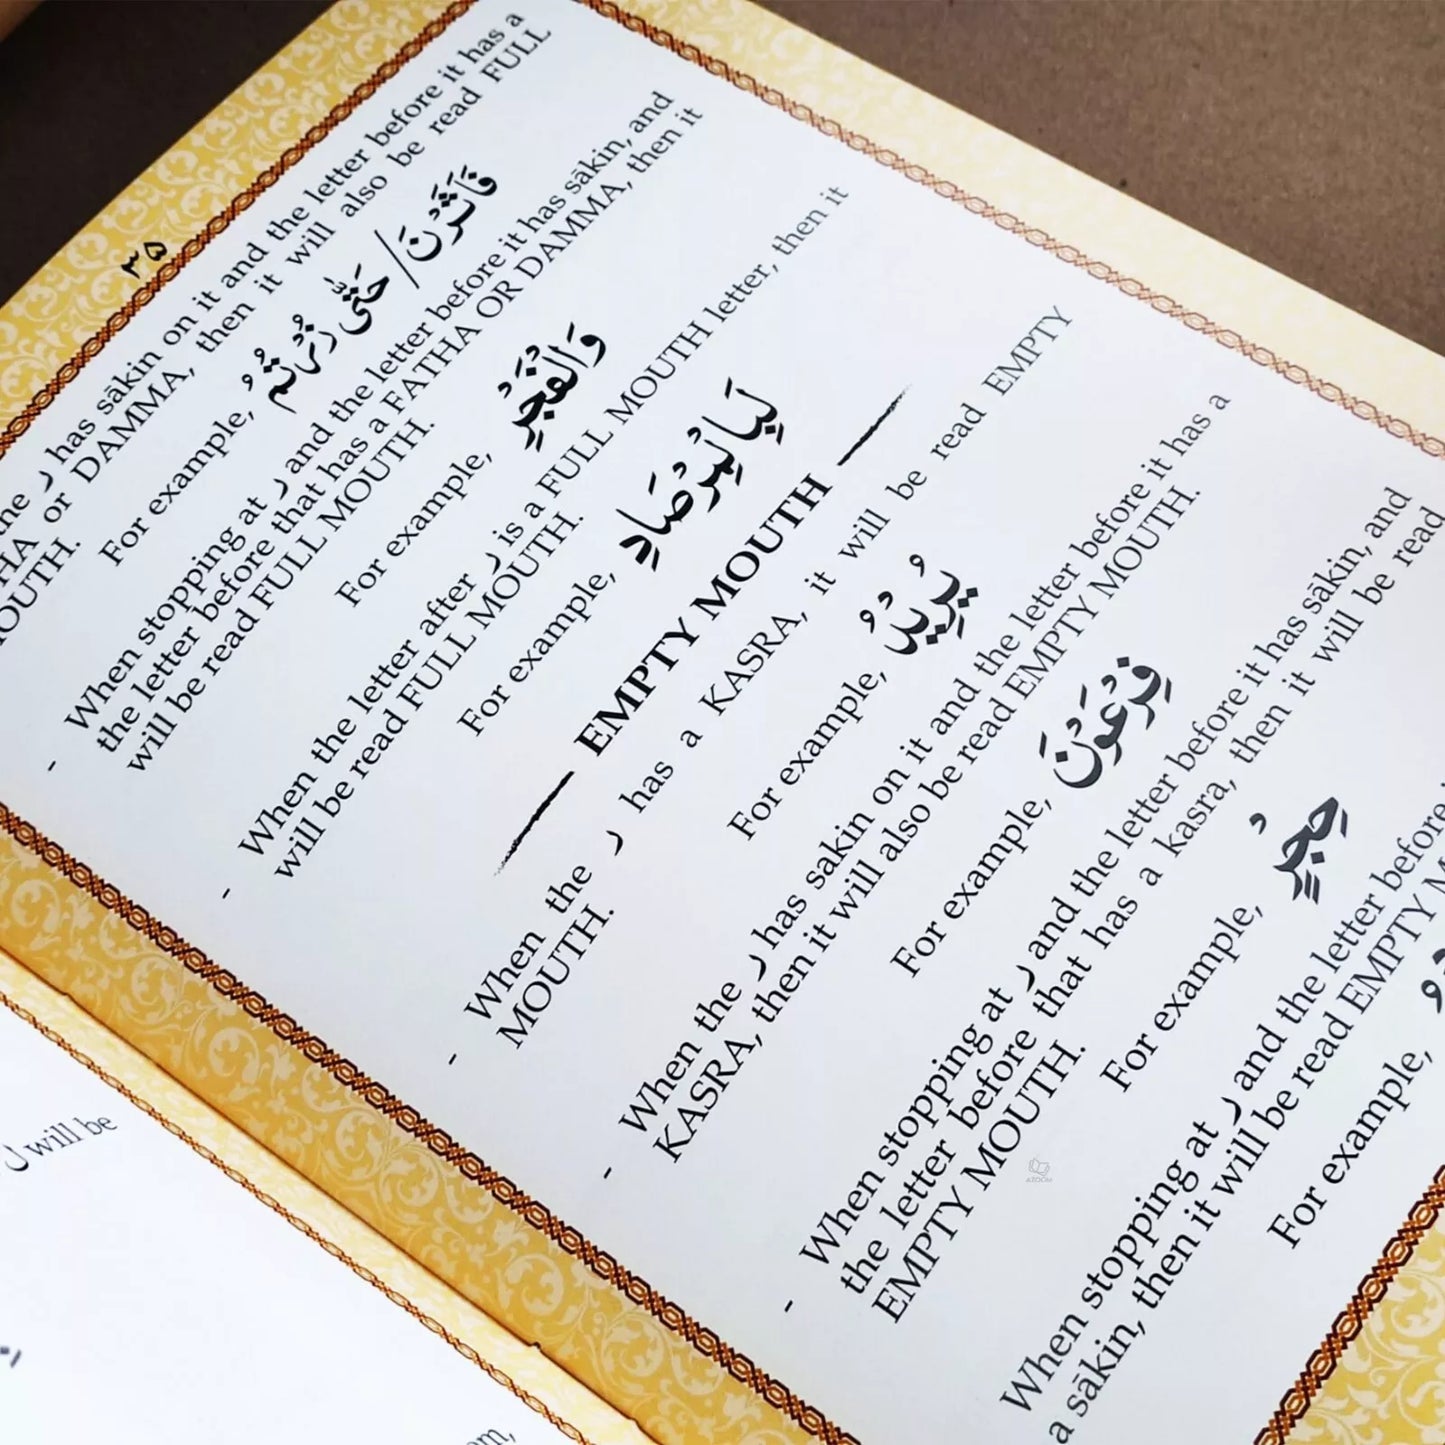 ۳۵
the ر has sākin on it and the letter before it has a
or DAMMA, then it will also be read FULL
MOUTH.
For example, حَتّٰى زُرْتُمُ / فَاَثَرْنَ
- When stopping at ر and the letter before it has sākin, and
the letter before that has a FATHA OR DAMMA, then it
will be read FULL MOUTH.
For example, وَالْفَجْرِ
- When the letter after ر is a FULL MOUTH letter, then it
will be read FULL MOUTH.
For example, لَبِالْمِرْصَادِ
EMPTY MOUTH
- When the ر has a KASRA, it will be read EMPTY
MOUTH.
For example, يُرِيْدُ
- When the ر has sakin on it and the letter before it has a
KASRA, then it will also be read EMPTY MOUTH.
For example, فِرْعَوْنَ
- When stopping at ر and the letter before it has sākin, and
the letter before that has a kasra, then it will be read
EMPTY MOUTH.
For example, حِجْرٍ
When stopping at ر and the letter before
a sākin, then it will be read EMPTY
For example,
ل will be